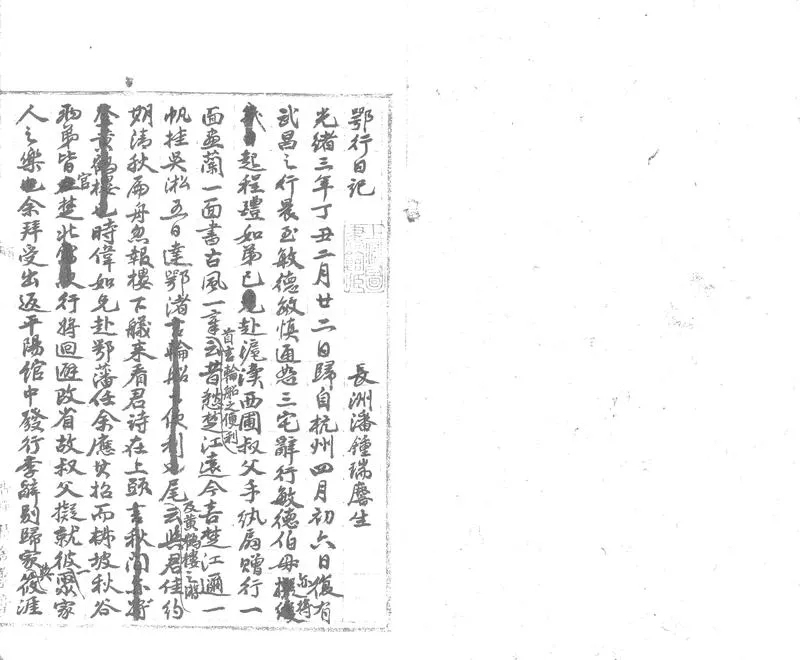 鄂行日記
長洲潘鍾瑞麐生
光緒三年丁丑二月廿二日歸自杭州四月初六日復有
武昌之行晨至敏德敏慎通恕三宅辭行敏德伯母
亦將
起程璍如弟已赴滬濱西圃叔父手執扇贈行一
面畫蘭一面書古風一章云昔愁楚江遠今喜楚江邇一
首言輪船之便利
帆挂吳淞五日達鄂渚尾云與君佳約
及黃鶴樓之勝
期清秋扁舟忽報樓下艤來看君詩在上頭
時偉如兄赴鄂藩任余應其招而棣坡秋谷
兩弟皆官楚北行將迴避改省故叔父擬就彼一聚家
人之樂也余拜受出返平陽館中發行李辭別歸家筱涯